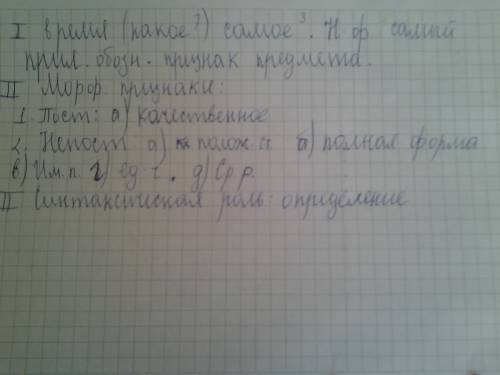 I время (какое?) самое³. Н ф самый
прил. обозн. признак предмета.
II Морф признаки:
1. Пост: а) качественное
2. Непост: а) полож. ст б) полная форма
в) Им. п. г) ед. ч. д) Ср р.
II Синтаксическая роль: определение